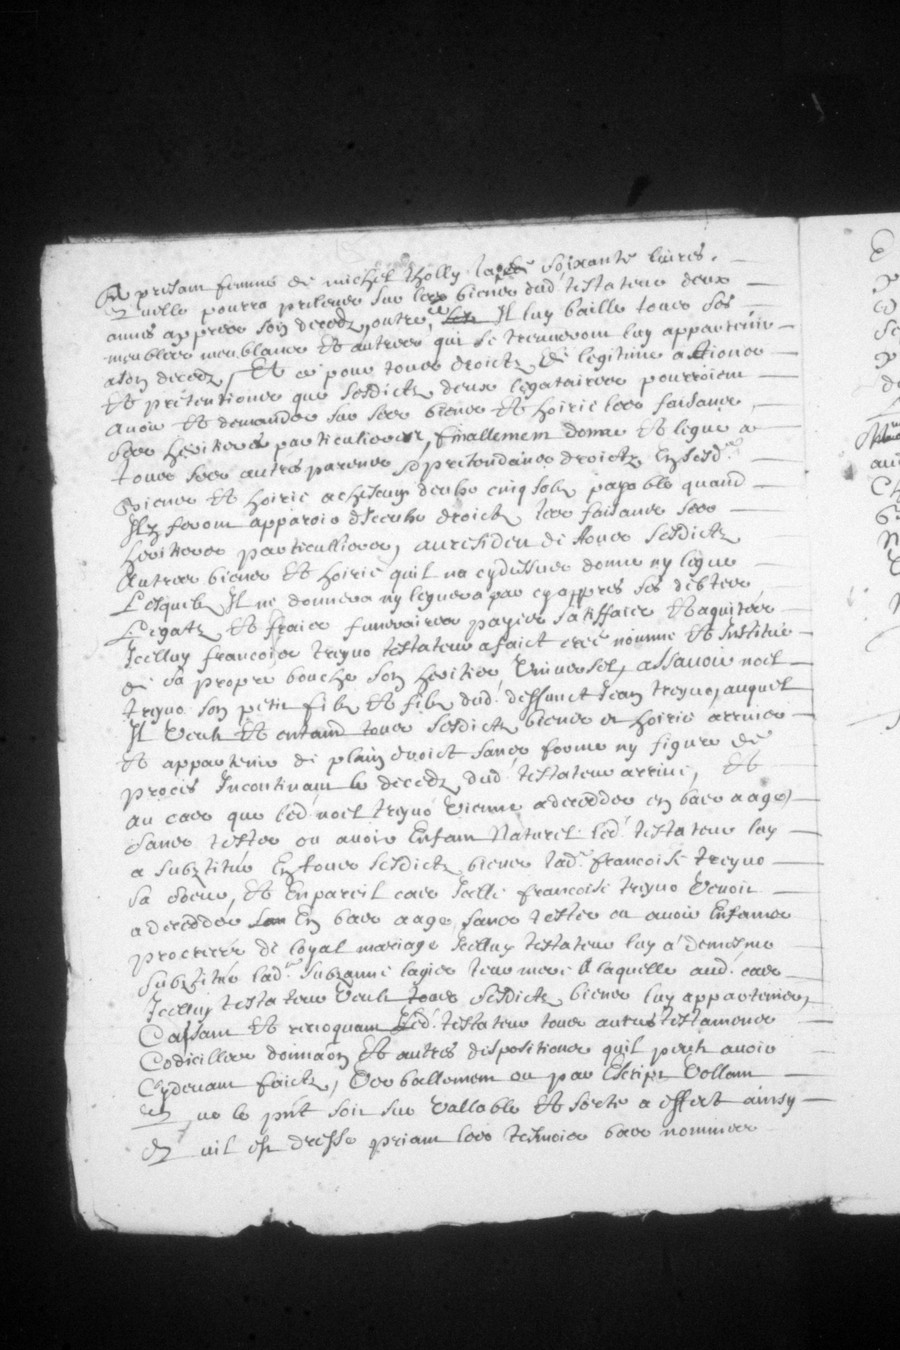 a presam femme de michel Tholly la soixante livres.
quelle pourra prelever sur les biens dud. testateur deux
annes appres son decedz, outre ce Il luy baille tous ses
meubles meublans et autres qui se treuveront luy appartenir
a son decedz, Et ce pour tous droictz de legitime actions
et pretentions que sesdictz deux legataires pourroient
avoir et demander sur ses biens et hoirie les faisans
ses heritiers particulliers, finallement donne et legue a
tous ses autres parens pretendans droictz en sesd.
biens et hoirie a chescung deulx cinq solz payable quand
Ilz feront apparoir diceulx droictz les faisans ses
heritiers particulliers, au residu de tous sesdictz
Autres biens et hoirie quil na cydessus donne ny legue
Lesquelz Il ne donnera ny leguera par cy appres ses debtes
Legatz et fraies funeraires payes satisffaictz et aquites
Icelluy francois treyno testateur a faict cree nomme et Institue
de sa propre bouche son heritier Universel, assavoir noel
treyno son petit filz et filz dud. deffunct Jean treyno, auquel
Il veult et entand tous sesdictz biens et hoirie arriver
et appartenir de plain droict sans forme ny figure de
proces Incontinant le decedz dud. testateur arrive, et
au cas que led. noel treyno vienne a deceder en bas aage,
sans tester ou avoir Enfant Naturel led. testateur luy
a substitue En tous sesdictz biens lad. francoise treyno
sa soeur, et En pareil cas Icelle francoise treyno venoit
a deceder En bas aage, sans tester ou avoir Enfans
procrees de loyal mariage Icelluy testateur luy a de mesme
substitue lad. Suzanne lagier leur mere A laquelle aud. cas
Icelluy testateur veult tous sesdictz biens luy appartenir,
Cassant et revoquant led. testateur tous autres testamens
Codicilles donnaon et autres dispositions quil peult avoir
Cydevant faictz, Verballement ou par Escript Vollant
que le pnt soit sur vallable et sorte a effect ainsy
quil est dresse priant les tesmoins bas nommes